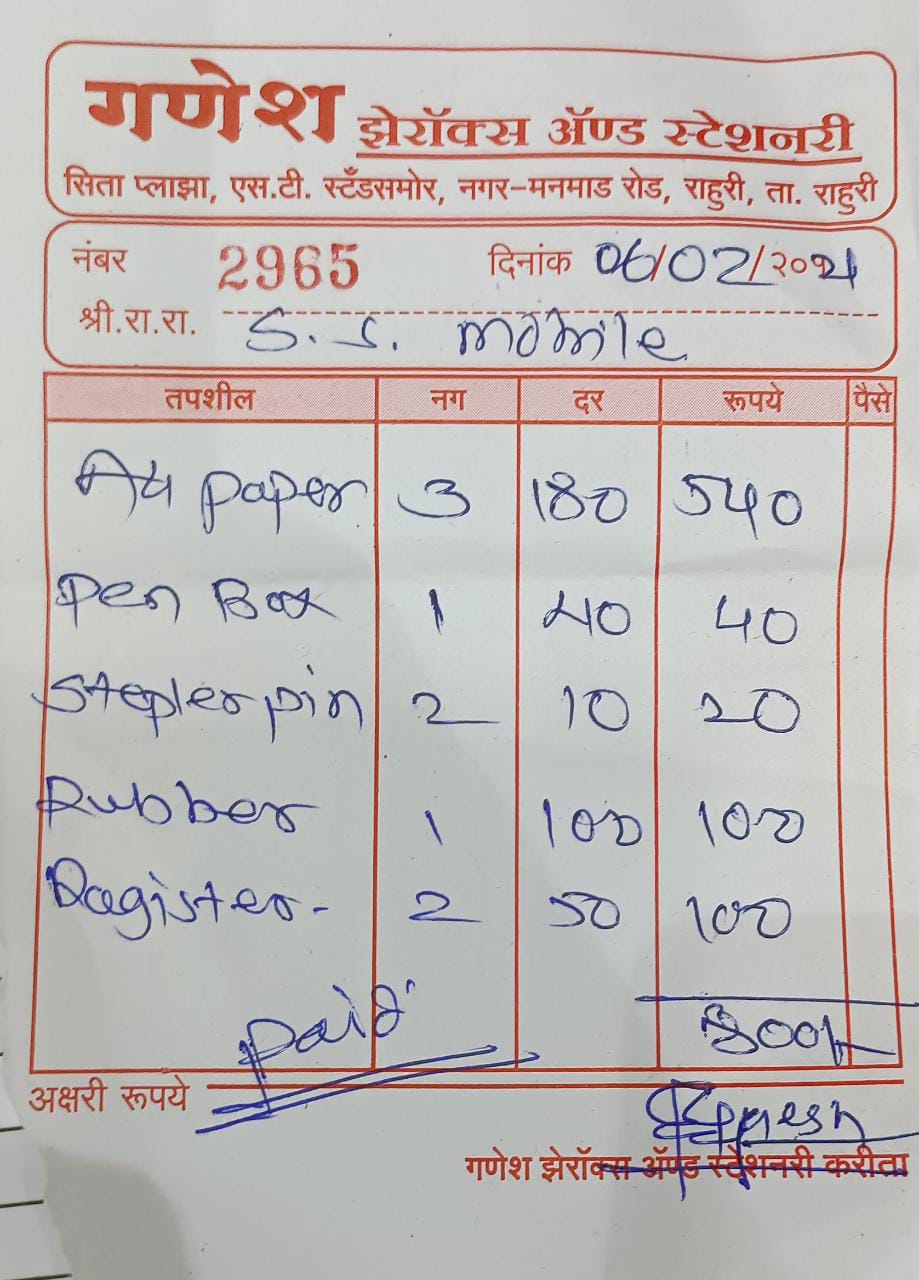 गणेश झेरॉक्स ॲण्ड स्टेशनरी
सिता प्लाझा, एस.टी. स्टँडसमोर, नगर-मनमाड रोड, राहुरी, ता. राहुरी
नंबर 2965 दिनांक 06/02/२०२१
श्री.रा.रा. S.S. mobile
तपशील नग दर रूपये पैसे
A4 paper 3 180 540
Pen Box 1 40 40
Stepler pin 2 10 20
Rubber 1 100 100
Ragister- 2 50 100
Paid 800/-
अक्षरी रूपये
गणेश झेरॉक्स ॲण्ड स्टेशनरी करीता